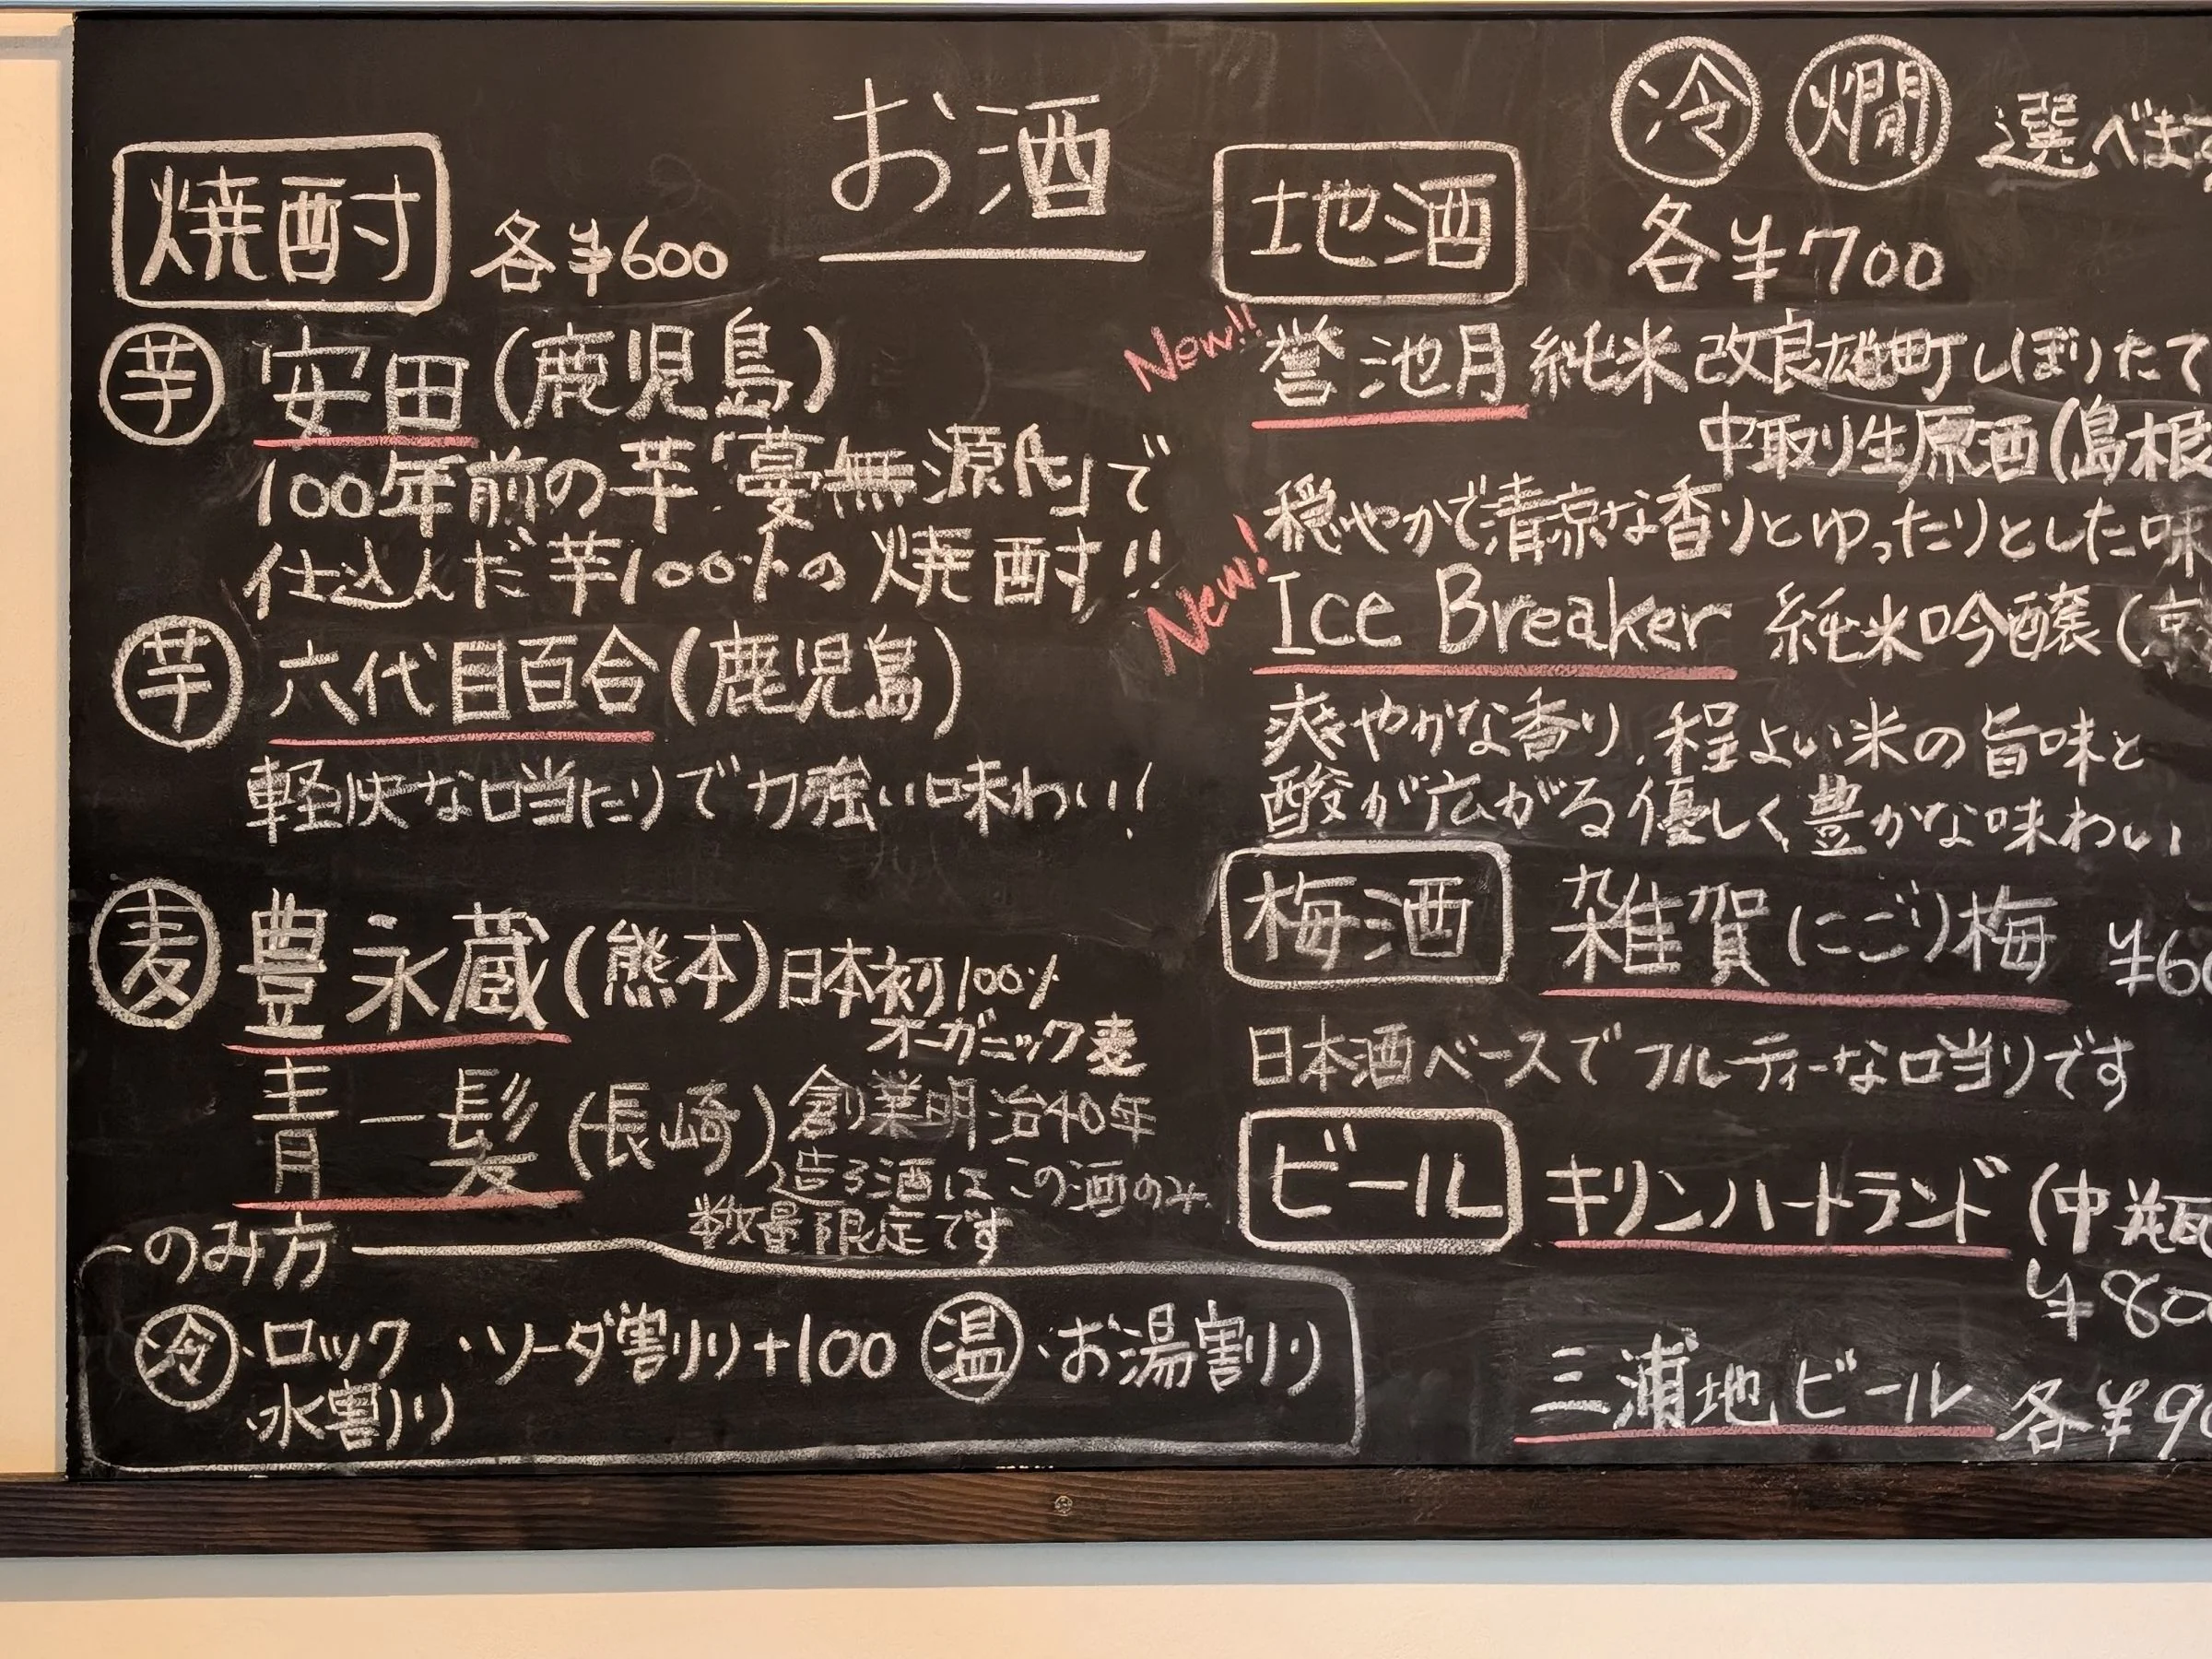 お酒
焼酎 各¥600
芋 安田(鹿児島)
100年前の芋「蔓無源氏」で
仕込んだ芋100%の焼酎!!
芋 六代目百合(鹿児島)
軽快な口当たりで力強い味わい!
麦 豊永蔵(熊本)日本初100%
オーガニック麦
青一髪(長崎)創業明治40年
造る酒はこの酒のみ
数量限定です
のみ方
冷・ロック ・ソーダ割り+100 温・お湯割り
・水割り
冷 燗 選べます
地酒 各¥700
New!! 誉池月 純米 改良雄町しぼりたて
中取り生原酒(島根
穏やかで清涼な香りとゆったりとした味
New! Ice Breaker 純米吟醸(京
爽やかな香り、程よい米の旨味と
酸が広がる優しく豊かな味わい
梅酒 雑賀(にごり)梅 ¥60
日本酒ベースでフルーティーな口当りです
ビール キリンハートランド(中瓶
¥80
三浦地ビール 各¥90